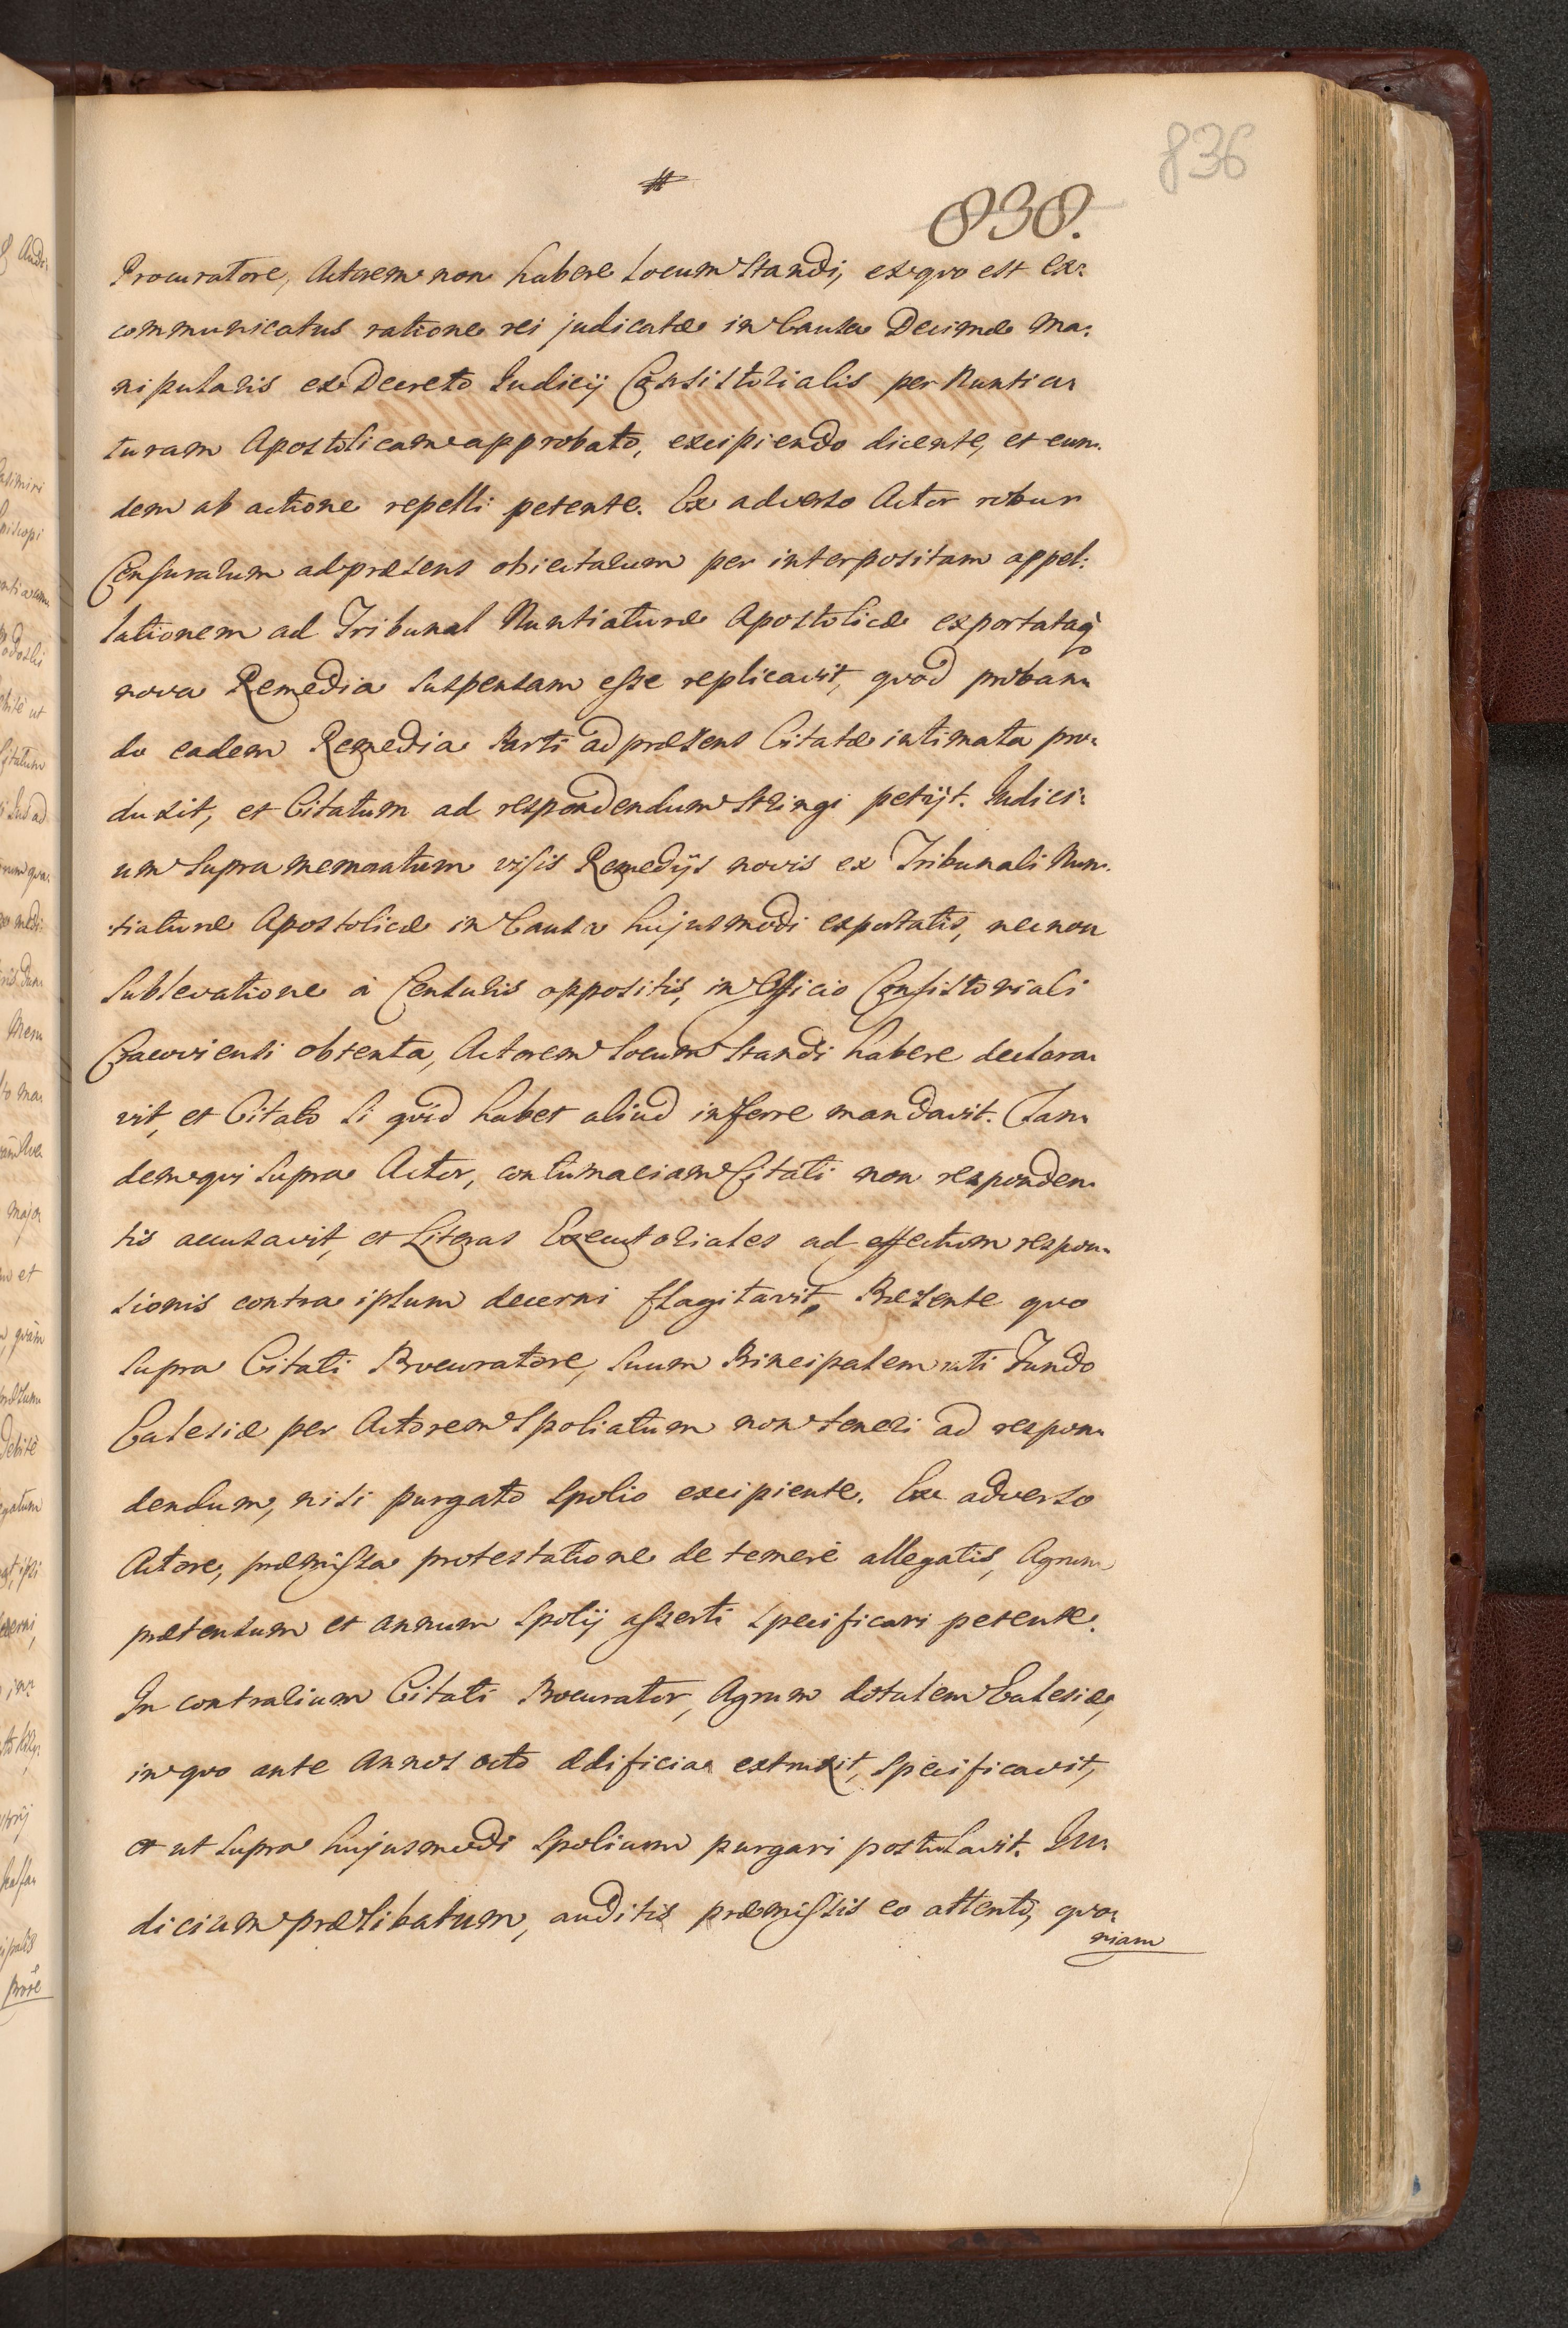 836
#
838.
Procuratore, Actorem non habere Locum Standi, ex quo est Ex:
communicatus ratione rei judicatæ in Causa Decimæ Ma:
nipularis ex Decreto Judicij Consistorialis per Nuntia:
turam Apostolicam approbato, excipiendo dicente, et eun:
dem ab actione repelli petente. Ex adverso Actor robur
Censurarum ad præsens obiectarum per interpositam appel:
lationem ad Tribunal Nuntiaturæ Apostolicæ exportataq
nova Remedia suspensam esse replicavit, quod proban:
do eadem Remedia Parti ad præsens Citatæ intimata pro:
duxit, et Citatum ad respondendum stringi petijt. Judici:
um supra memoratum visis Remedijs novis ex Tribunali Nun:
tiaturæ Apostolicæ in Causa hujusmodi exportatis, necnon
sublevatione à Censuris oppositis, in Officio Consistoriali
Cracoviensi obtenta, Actorem Locum Standi habere declara:
vit, et Citato si quid habet aliud inferre mandavit. Tan:
dem qui supra Actor, contumaciam Citati non responden:
tis accusavit, et Literas Executoriales ad effectum respon:
sionis contra ipsum decerni flagitavit, Præsente quo
supra Citati Procuratore, suum Principalem uti Fundo
Ecclesiæ per Actorem Spoliatum non teneri ad respon:
dendum, nisi purgato spolio excipiente. Ex adverso
Actore, præmissa protestatione de temerè allegatis, Agrum
prætensum et annum spolij asserti specificari petente.
In contrarium Citati Procurator, Agrum dotalem Ecclesiæ,
in quo ante Annos octo ædificia extruxit, specificavit,
et ut supra hujusmodi spolium purgari postulavit. Ju:
dicium prælibatum, auditis præmissis eo attento, quo:
niam